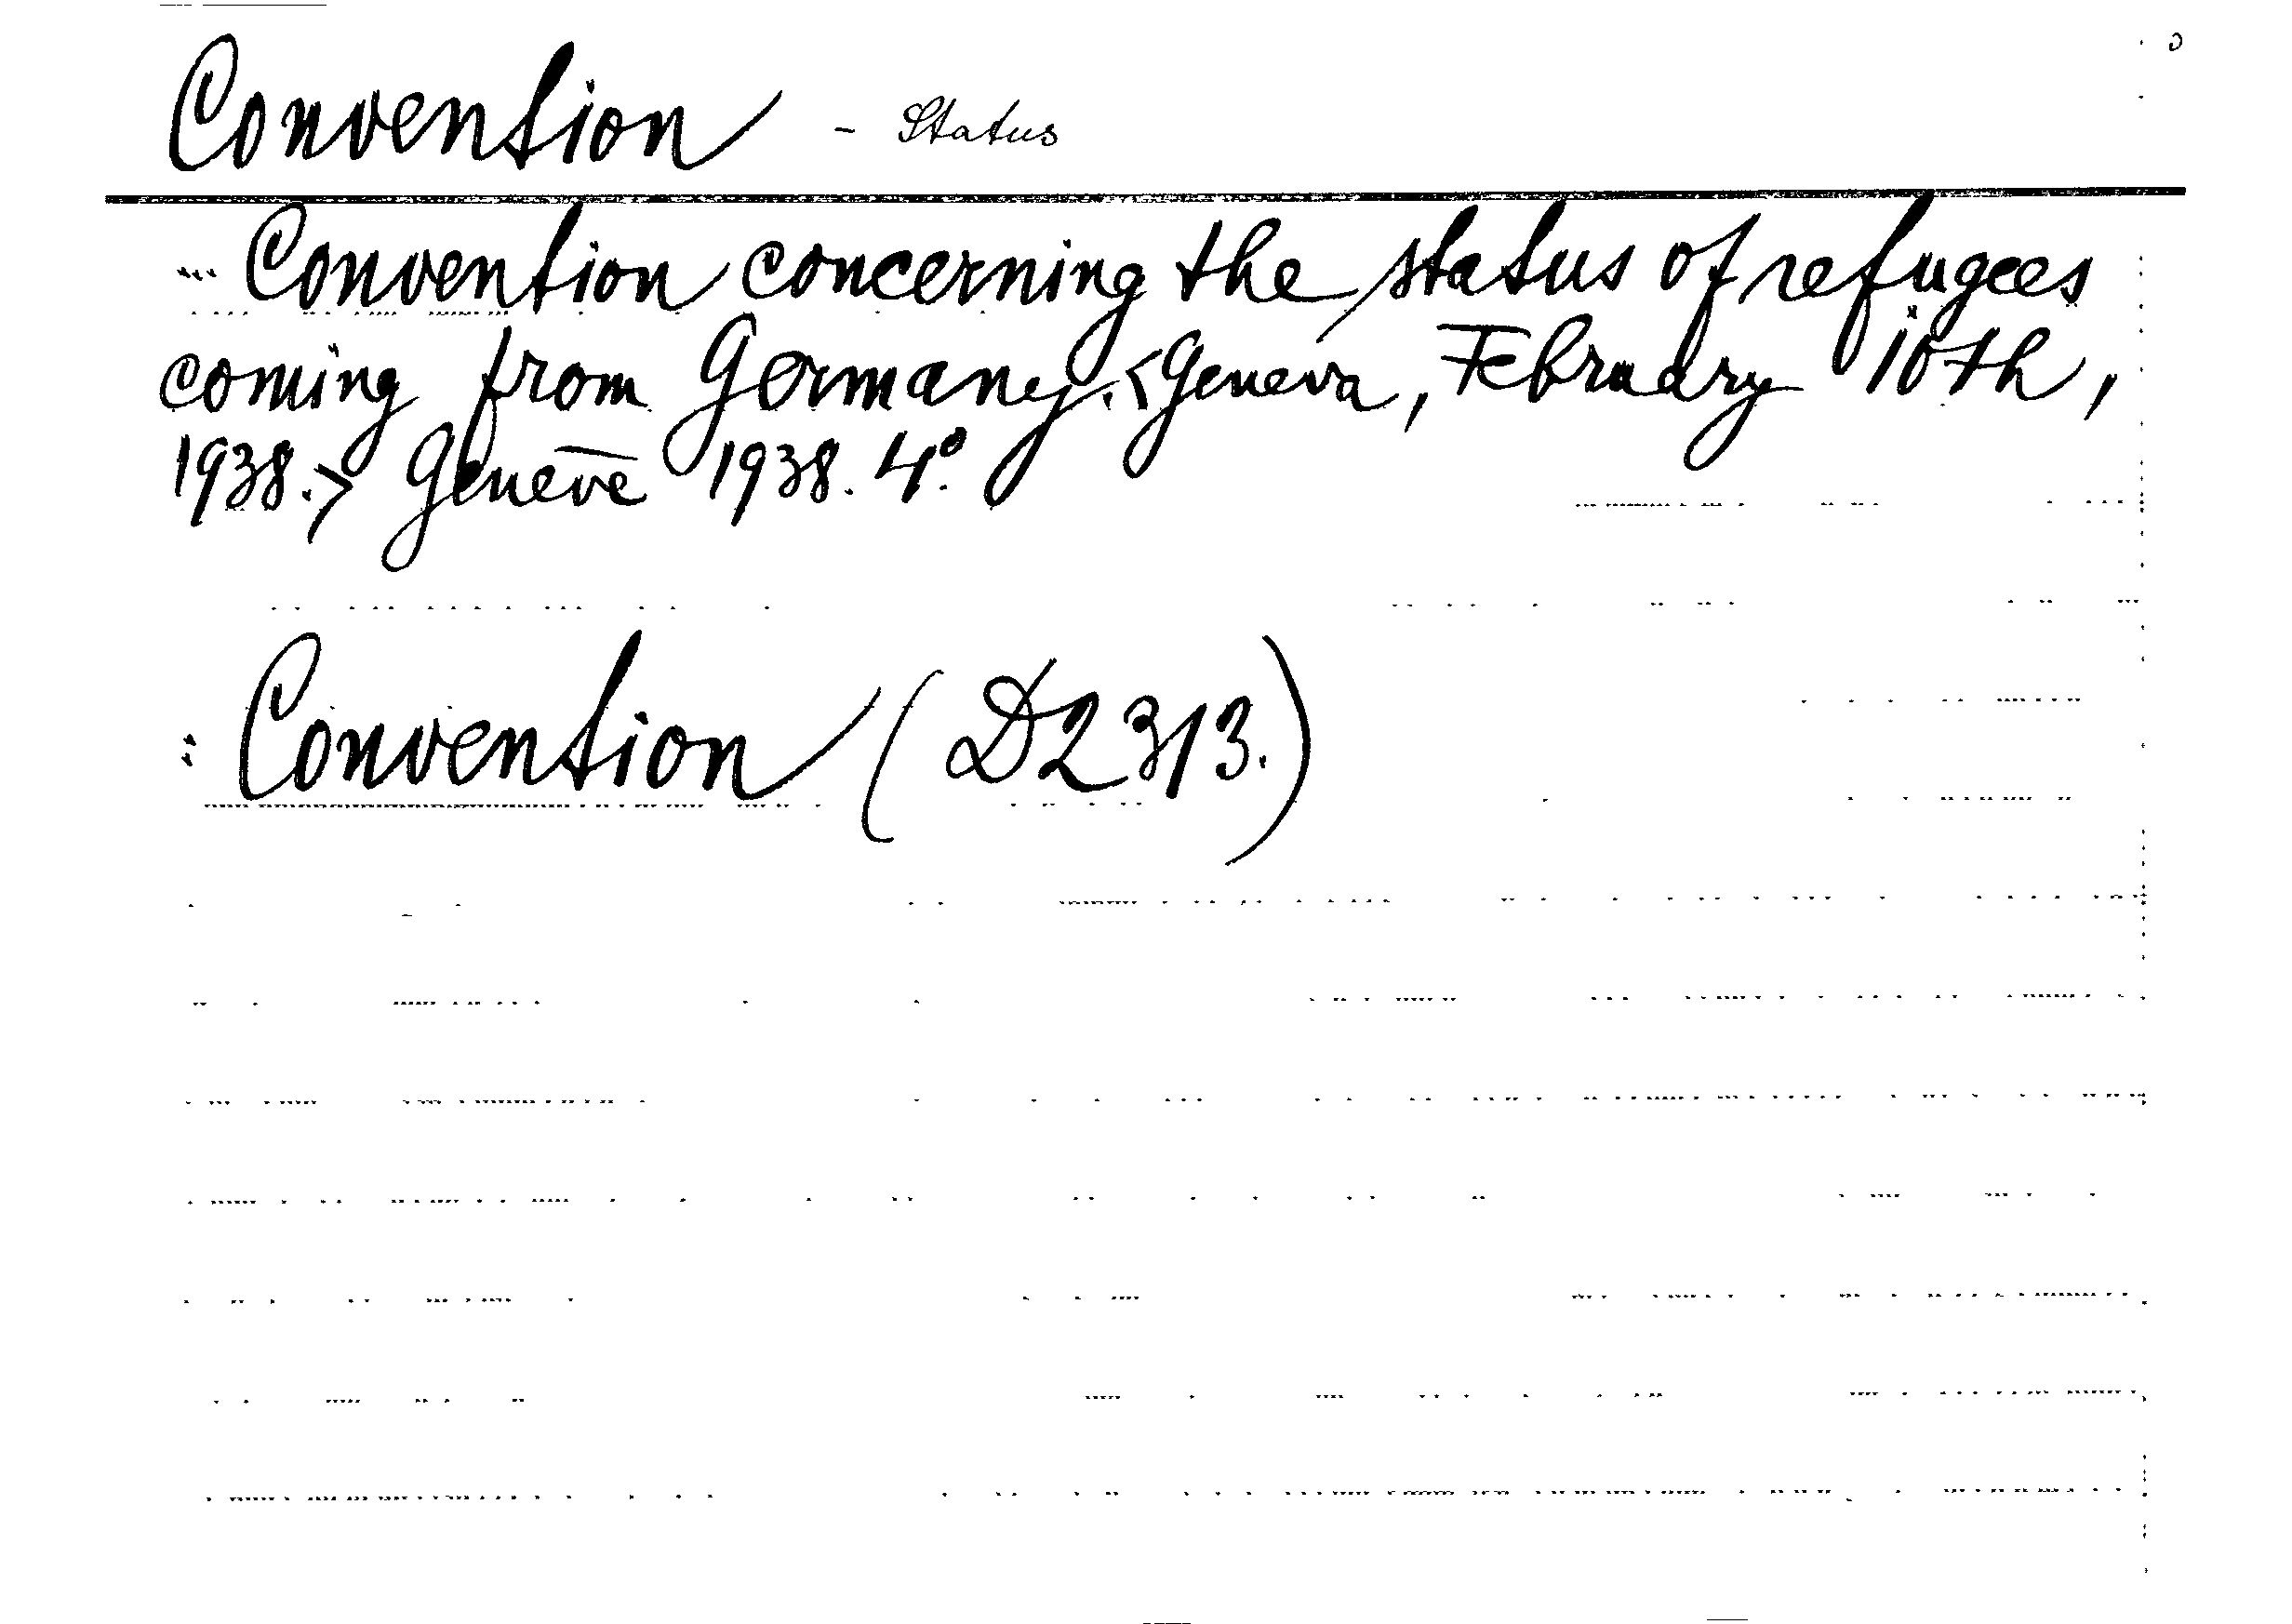 Convention - Status
... Convention concerning the status of refugees
coming from Germany. <Geneva, February 10th,
1938.> Genève 1938. 4°.
: Convention (D2313.)